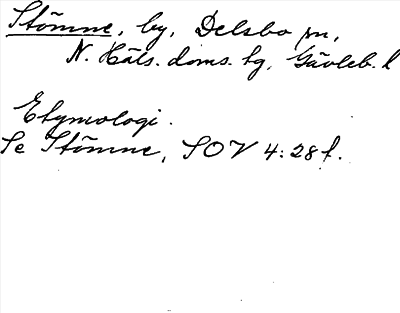 Stömne, by, Delsbo sn,
N. Häls. doms. tg, Gävleb. l
Etymologi.
Se Stömne, SOV 4:28 f.